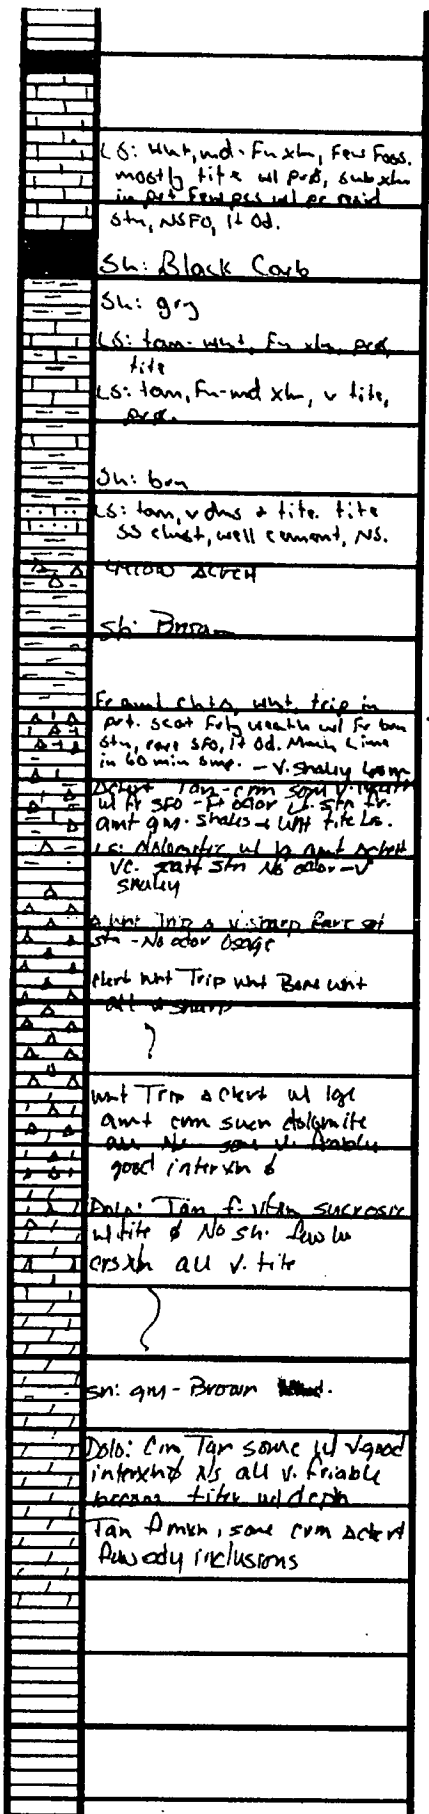 LS: Wht, md-Fn xln, Few Foss.
mostly tite w/ prφ, sub xln
in prt Few pcs w/ pr resid
stn, NSFO, lt Od.
Sh: Black Carb
Sh: gry
LS: tan-wht, Fn xln, prφ,
tite
LS: tan, Fn-md xln, v tite,
prφ.
Sh: brn
LS: tan, v dns & tite. tite
SS clust, well cement, NS.
Sh: Brown
Fr amt cht Δ, wht, trip in
prt. scat Frly weath w/ Fr brn
stn, rare SFO, lt Od. Much Lime
in 60 min smp. - V. Shaley
Δchert Tan-crm som V.
w/ fr SFO - Ft odor lt. stn fr.
amt grn. shales & Wht tite Ls.
Ls: dolomitic w/ amt Δchert
scatt stn No odor - V
shaley
Δ Wht Trip Δ v. sharp Rare sat
stn - No odor Osage
chert wht Trip wht Bone wht
all v sharp
wht Trip Δ chert w/ lge
amt crm sucr dolomite
all Ns some v. friable
good interxln φ
Dolo: Tan f- sucrosic
w/ tite φ No sh. few
crsxln all v. tite
Sh: grn - Brown
Dolo: Crm Tan some w/ v good
interxln φ Ns all v. friable
becomes titer w/ depth
Tan fmxln, some crm Δchert
few inclusions